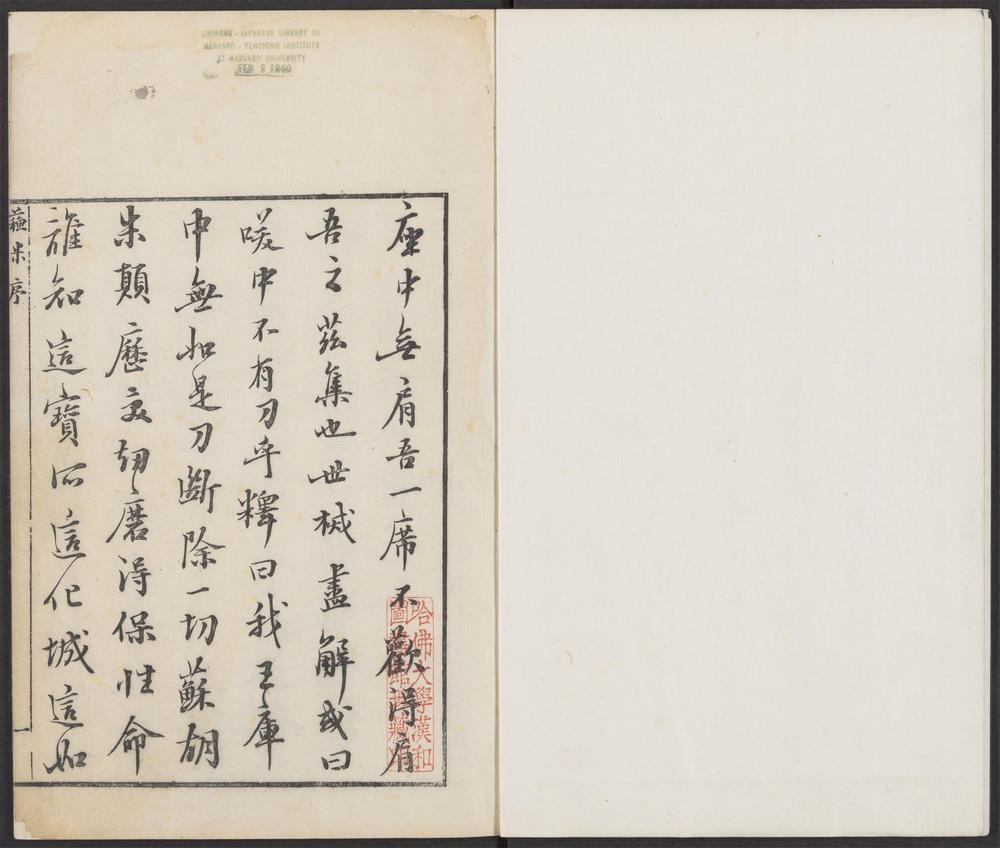 CHINESE - JAPANESE LIBRARY OF
HARVARD - YENCHING INSTITUTE
AT HARVARD UNIVERSITY
FEB 9 1940
座中無肩吾一席不歡得肩
吾之茲集也世械盡解或曰
咲中不有刀乎釋曰我王庫
中無如是刀斷除一切蘇胡
朱顛歷交切磨得保性命
誰知這寶所這化城這如
蘓朱序
一
哈佛大學漢和
圖書館珍藏印